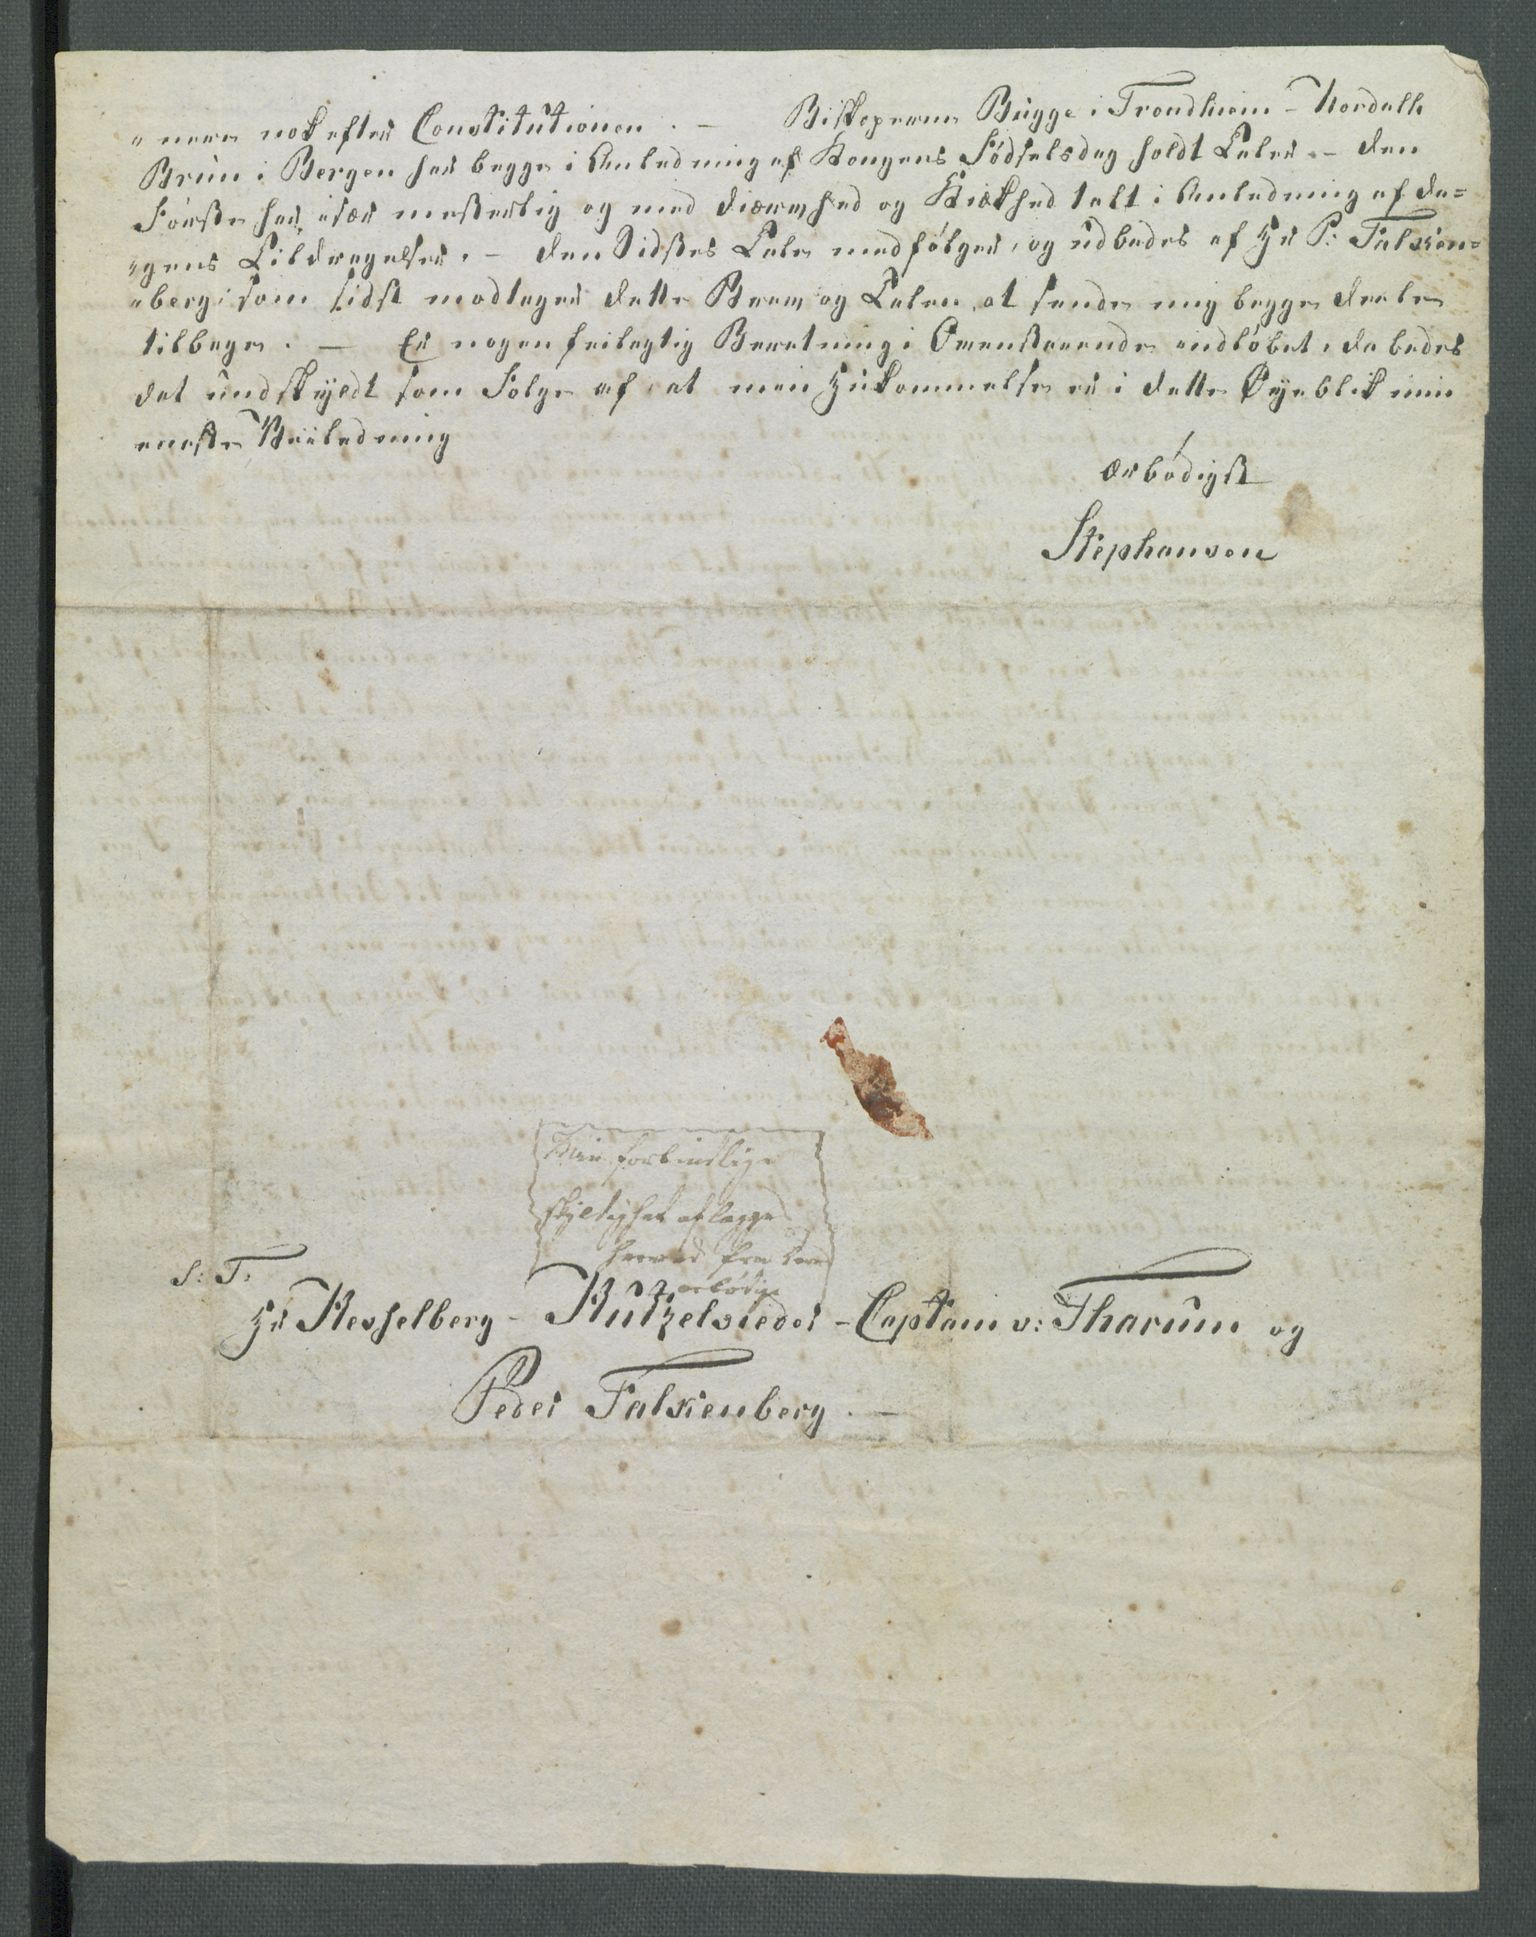 „nere nok efter Constitutionen. — Biskoperne Bugge i Trondhiem - Nordalh
Brun i Bergen har begge i Anledning af Kongens Födselsdag holdt Taler. — Den
Første har især mesterlig og med Diærvhed og Kiækhed talt i Anledning af Da=
„gens Tildragelser. — Den Sidstes Tale medfølger, og udbedes af Hr P: Falken=
„berg, som sidst modtager dette Brev og Talen, at sende mig begge Deele
tilbage. — Er nogen feilagtig Beretning i Ovenstaaende indløbet, da bedes
det undskyldt som Følge af, at min Hukommelse er i dette Øyeblik min
eneste Veiledning
Ærbödigst
Stephanson
Min forbindlige
skyldighed aflægges
herved fra Deres
ærbödige
S: T:
Hr Kesselberg - Rützelsieder - Captain v: Tharum og
Peder Falkenberg. —